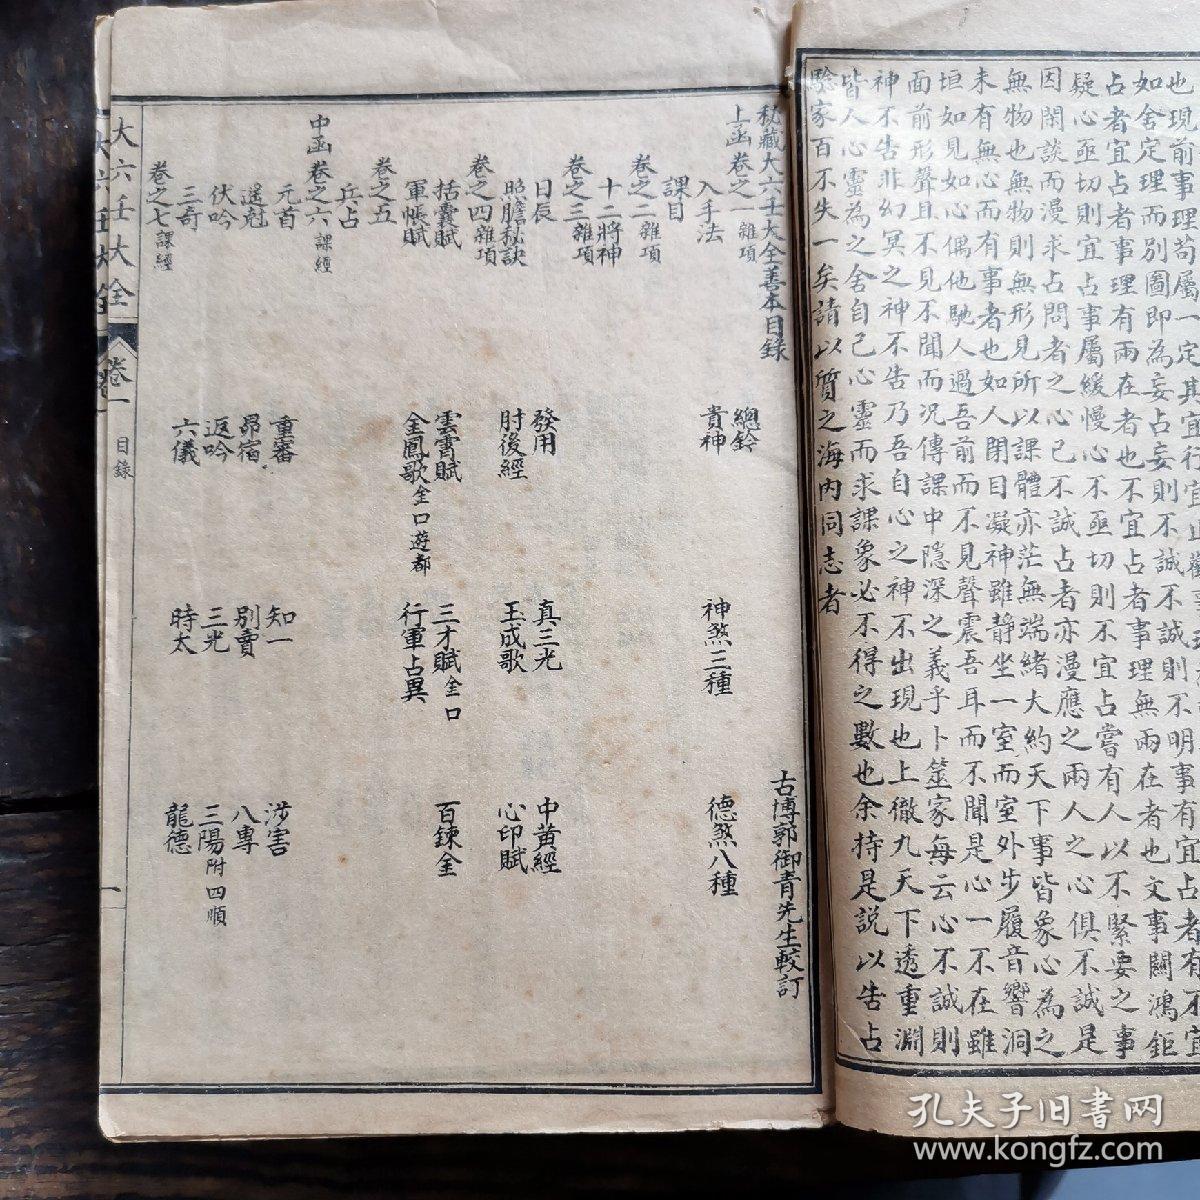 也現前事理苟屬一定其宜行宜止
如舍定理而別圖即為妄占妄則不誠不誠則不明事有宜占者有不宜
占者宜占者事理有兩在者也不宜占者事理無兩在者也文事關鴻鉅
疑心亟切則宜占事屬緩慢心不亟切則不宜占嘗有人以不緊要之事
因閑談而漫求占問者之心已不誠占者亦漫應之兩人之心俱不誠是
無物也無物則無形見所以課體亦茫無端緒大約天下事皆象心為之
未有無心而有事者也如人閉目凝神雖静坐一室而室外步履音響洞
垣如見如心偶他馳人過吾前而不見聲震吾耳而不聞是心一不在雖
面前形聲且不見不聞而况傳課中隱深之義乎卜筮家每云心不誠則
神不告非幻冥之神不告乃吾自心之神不出現也上徹九天下透重淵
皆人心靈為之舍自己心靈而求課象必不得之數也余持是説以告占
驗家百不失一矣請以質之海內同志者
秘藏大六壬大全善本目錄
古博郭御青先生較訂
上函卷之一雜項
總鈐
入手法 貴神 神煞三種 德煞八種
課目
卷之二雜項
十二將神
卷之三雜項
日辰 發用 真三光 中黄經
照膽秘訣 肘後經 玉成歌 心印賦
卷之四雜項
括囊賦 雲霄賦 三才賦金口 百鍊金
軍帳賦 金鳳歌金口遊都 行軍占異
卷之五
兵占
中函卷之六課經
元首 重審 知一 涉害
遥尅 昴宿 別責 八專
伏吟 返吟 三光 三陽附四順
三奇 六儀 時太 龍德
卷之七課經
大六壬大全 卷一 目錄 一
孔夫子旧书网
www.kongfz.com